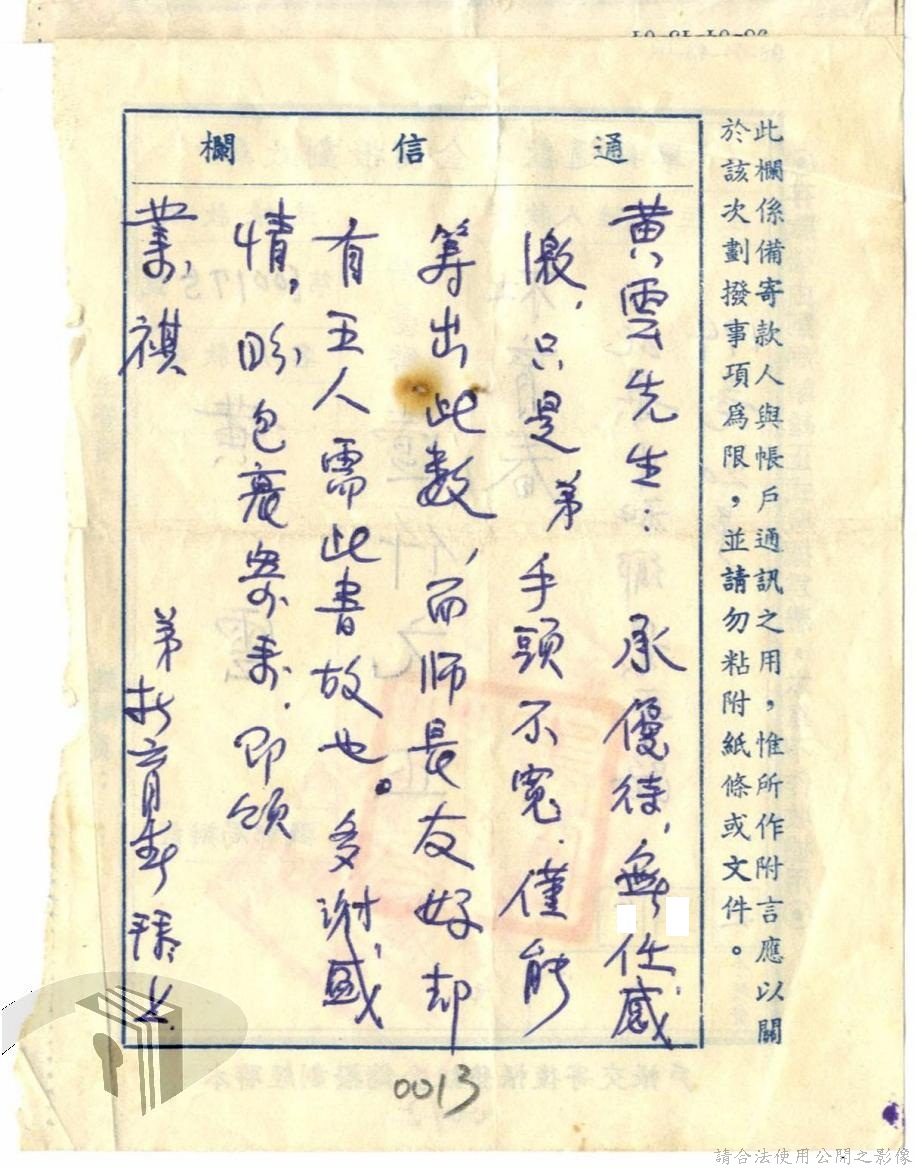 此欄係備寄款人與帳戶通訊之用，惟所作附言應以關
於該次劃撥事項爲限，並請勿粘附紙條或文件。
通信欄
黃雲先生：承優待，無任感
激，只是弟手頭不寬．僅能
籌出此數，而师長友好却
有五人需此書故也。多谢盛
情，盼包裹寄来．即頌
業祺
弟 育春 上．
0013
請合法使用公開之影像